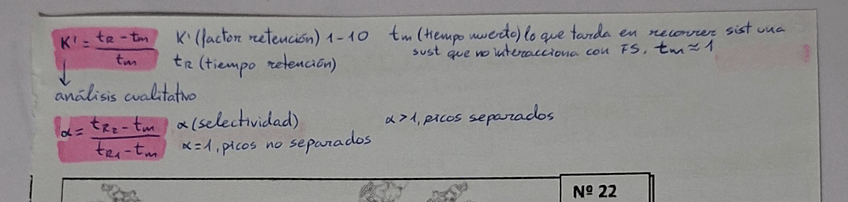 K' = (tR - tm) / tm K' (factor retención) 1-10 tm (tiempo muerto) lo que tarda en recorrer sist una
tR (tiempo retención) sust que no interacciona con FS. tm ≈ 1
↓
análisis cualitativo
α = (tR2 - tm) / (tR1 - tm) α (selectividad) α > 1, picos separados
α = 1, picos no separados
Nº 22